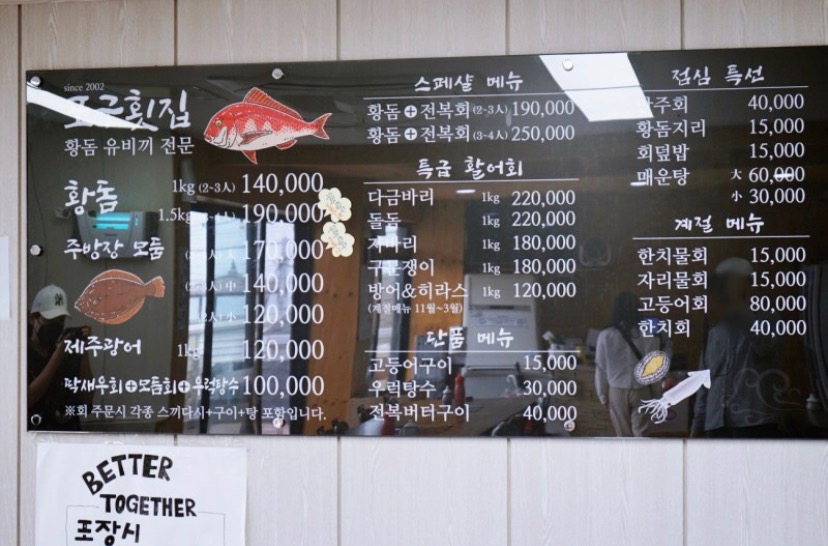 since 2002
횟집
황돔 유비끼 전문
황돔 1kg (2~3人) 140,000
1.5kg 190,000
주방장 모듬 170,000
中 140,000
小 120,000
제주광어 1kg 120,000
딱새우회+모듬회+우럭탕수 100,000
※회 주문시 각종 스끼다시+구이+탕 포함입니다.
스페샬 메뉴
황돔+전복회 (2~3人) 190,000
황돔+전복회 (3~4人) 250,000
특급 활어회
다금바리 1kg 220,000
돌돔 1kg 220,000
1kg 180,000
1kg 180,000
방어&히라스 1kg 120,000
(계절메뉴 11월~3월)
단품 메뉴
고등어구이 15,000
우럭탕수 30,000
전복버터구이 40,000
점심 특선
40,000
황돔지리 15,000
회덮밥 15,000
매운탕 大 60,000
小 30,000
계절 메뉴
한치물회 15,000
자리물회 15,000
고등어회 80,000
한치회 40,000
BETTER
TOGETHER
포장시